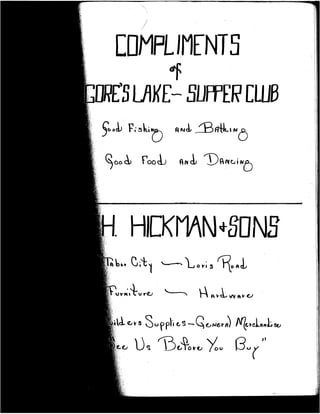 COMPLIMENTS
of
GORE'S LAKE – SUPPER CLUB
Good Fishing AND Bathing
Good Food AND DANCING
H. HICKMAN & SONS
Tabor City — Loris Road
Furniture — Hardware
uilders Supplies – GeneraL Merchandise
See Us Before You Buy"